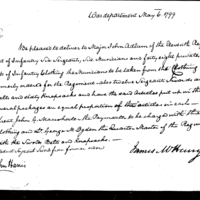 War department May 6 1799
Be pleased to deliver to Major John Adlum of the Eleventh Reg
of Infantry Six Sergeants, Six Musicians and fifty eight privates
of Infantry Clothing the Musicians to be taken from the Clothing
for the Regiment also twelve Sergeants Swords and
Belts and sixty Knapsacks and have the said Articles put up in the
several packages an equal proportion of the articles in each
George H Marschalk the Paymaster to be charged with the
Clothing and Lt. George M Ogden the Quarter Master of the Regiment
with the Swords Belts and Knapsacks
James McHenry
John Harris